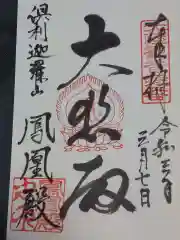 奉拝
令和三年
三月七日
大悲殿
倶利迦羅山
鳳凰殿